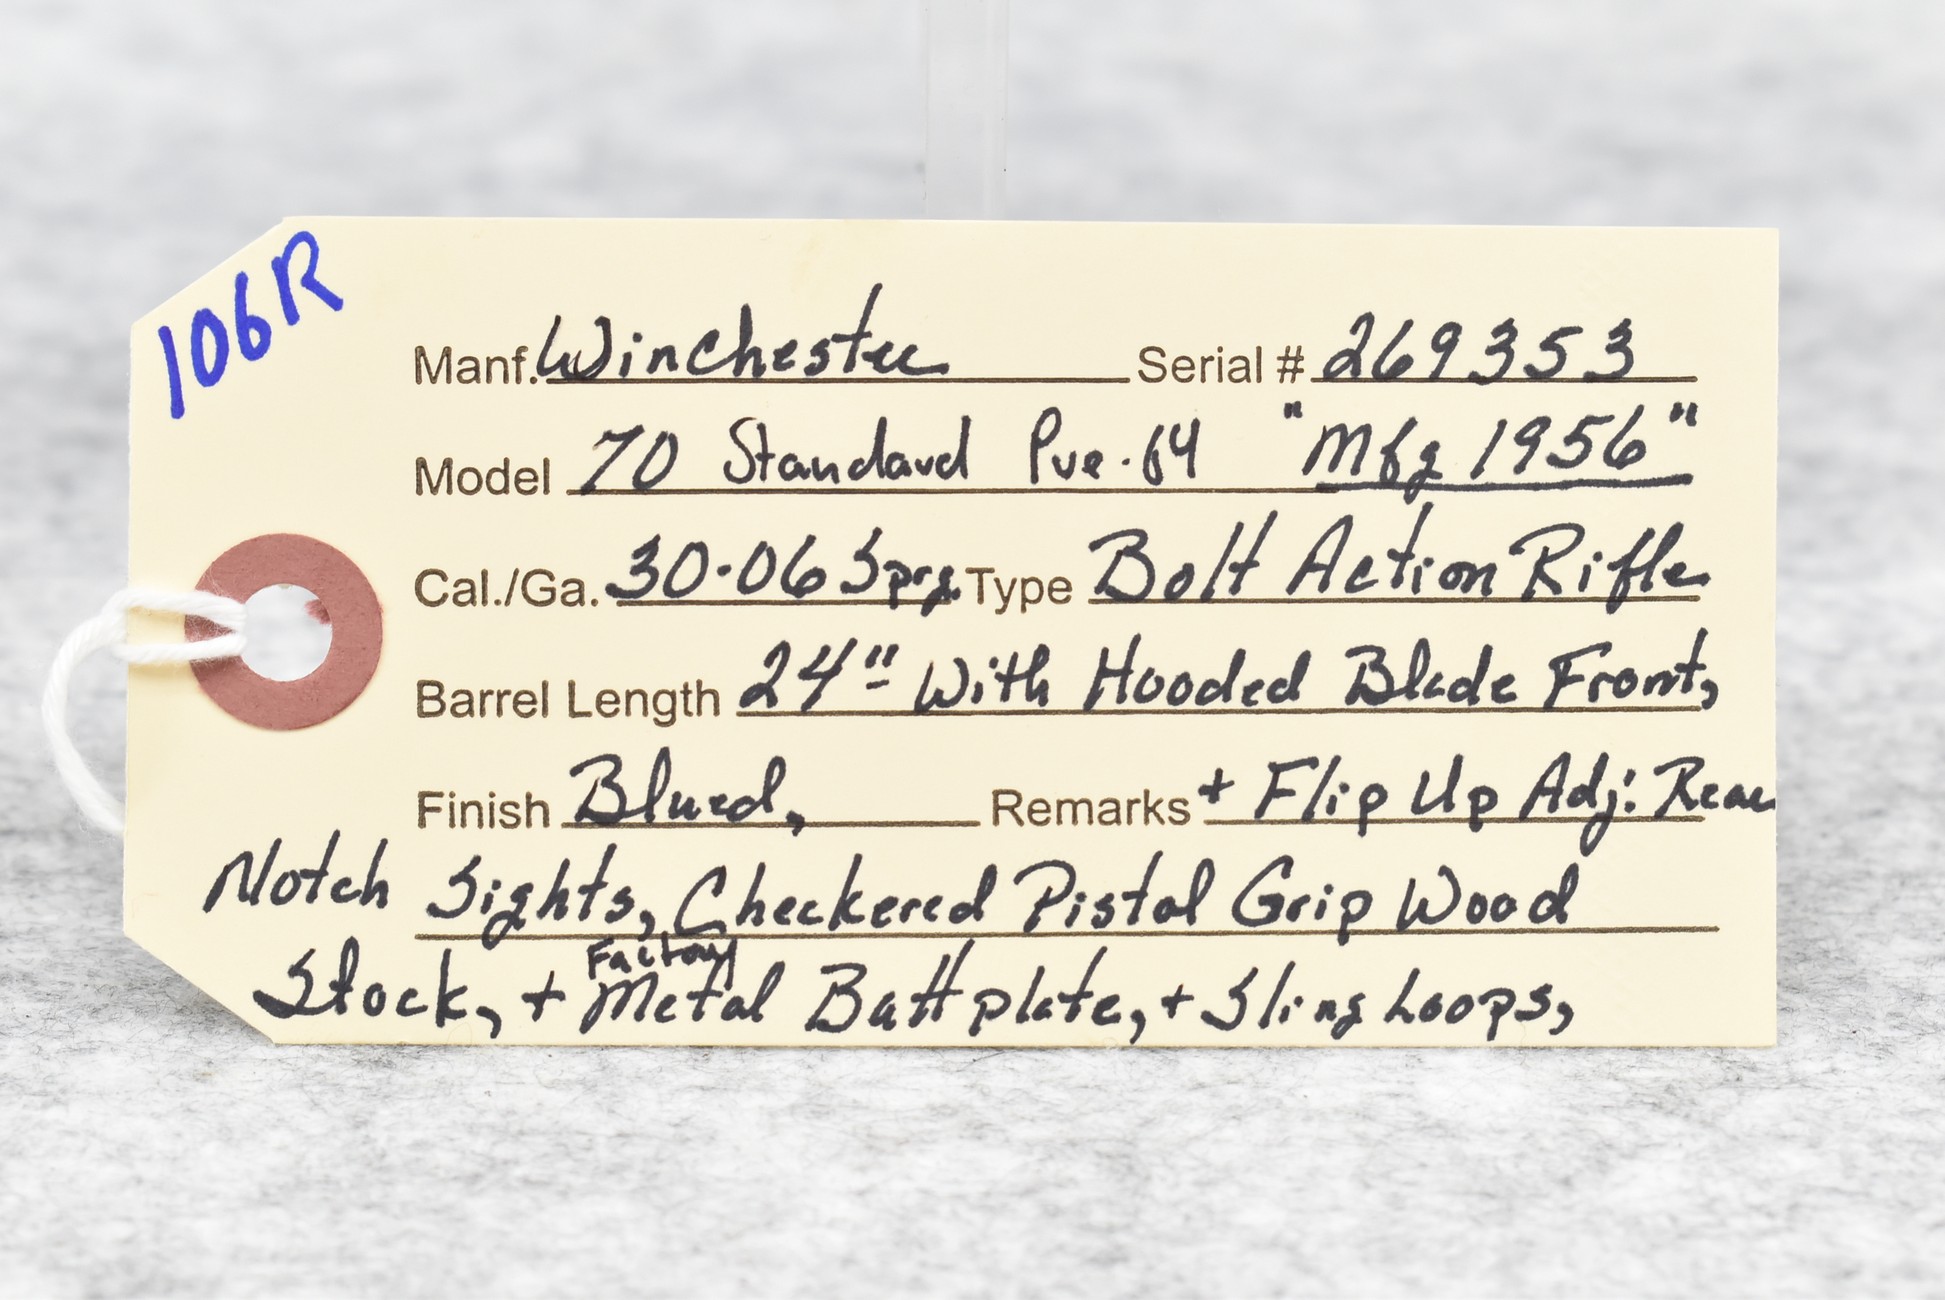 106R
Manf. Winchester Serial # 269353
Model 70 Standard Pre-64 "Mfg 1956"
Cal./Ga. 30-06 Sprg. Type Bolt Action Rifle
Barrel Length 24" With Hooded Blade Front,
Finish Blued, Remarks + Flip Up Adj. Rear
Notch Sights, Checkered Pistol Grip Wood
Factory
Stock, + Metal Buttplate, + Sling Loops,